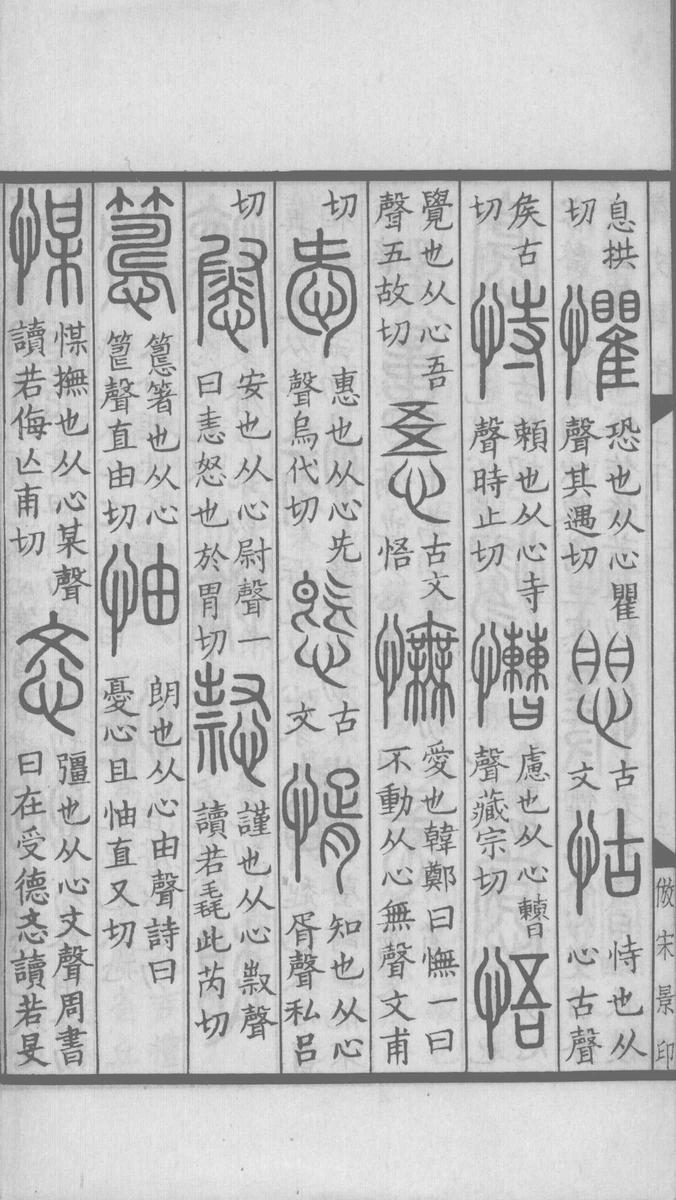 息拱切 懼 恐也从心瞿聲其遇切 愳 古文 怙 恃也从心古聲
矦古切 恃 賴也从心寺聲時止切 慒 慮也从心𣍘聲藏宗切 悟
覺也从心吾聲五故切 古文悟 憮 愛也韓鄭曰憮一曰不動从心無聲文甫
切 㤅 惠也从心先聲烏代切 古文 㥠 知也从心胥聲私呂
切 慰 安也从心尉聲一曰恚怒也於胃切 謹也从心㕞聲讀若毳此芮切
箸也从心聲直由切 怞 朗也从心由聲詩曰憂心且怞直又切
撫也从心某聲讀若侮亾甫切 忞 彊也从心文聲周書曰在受德忞讀若旻
倣宋景印